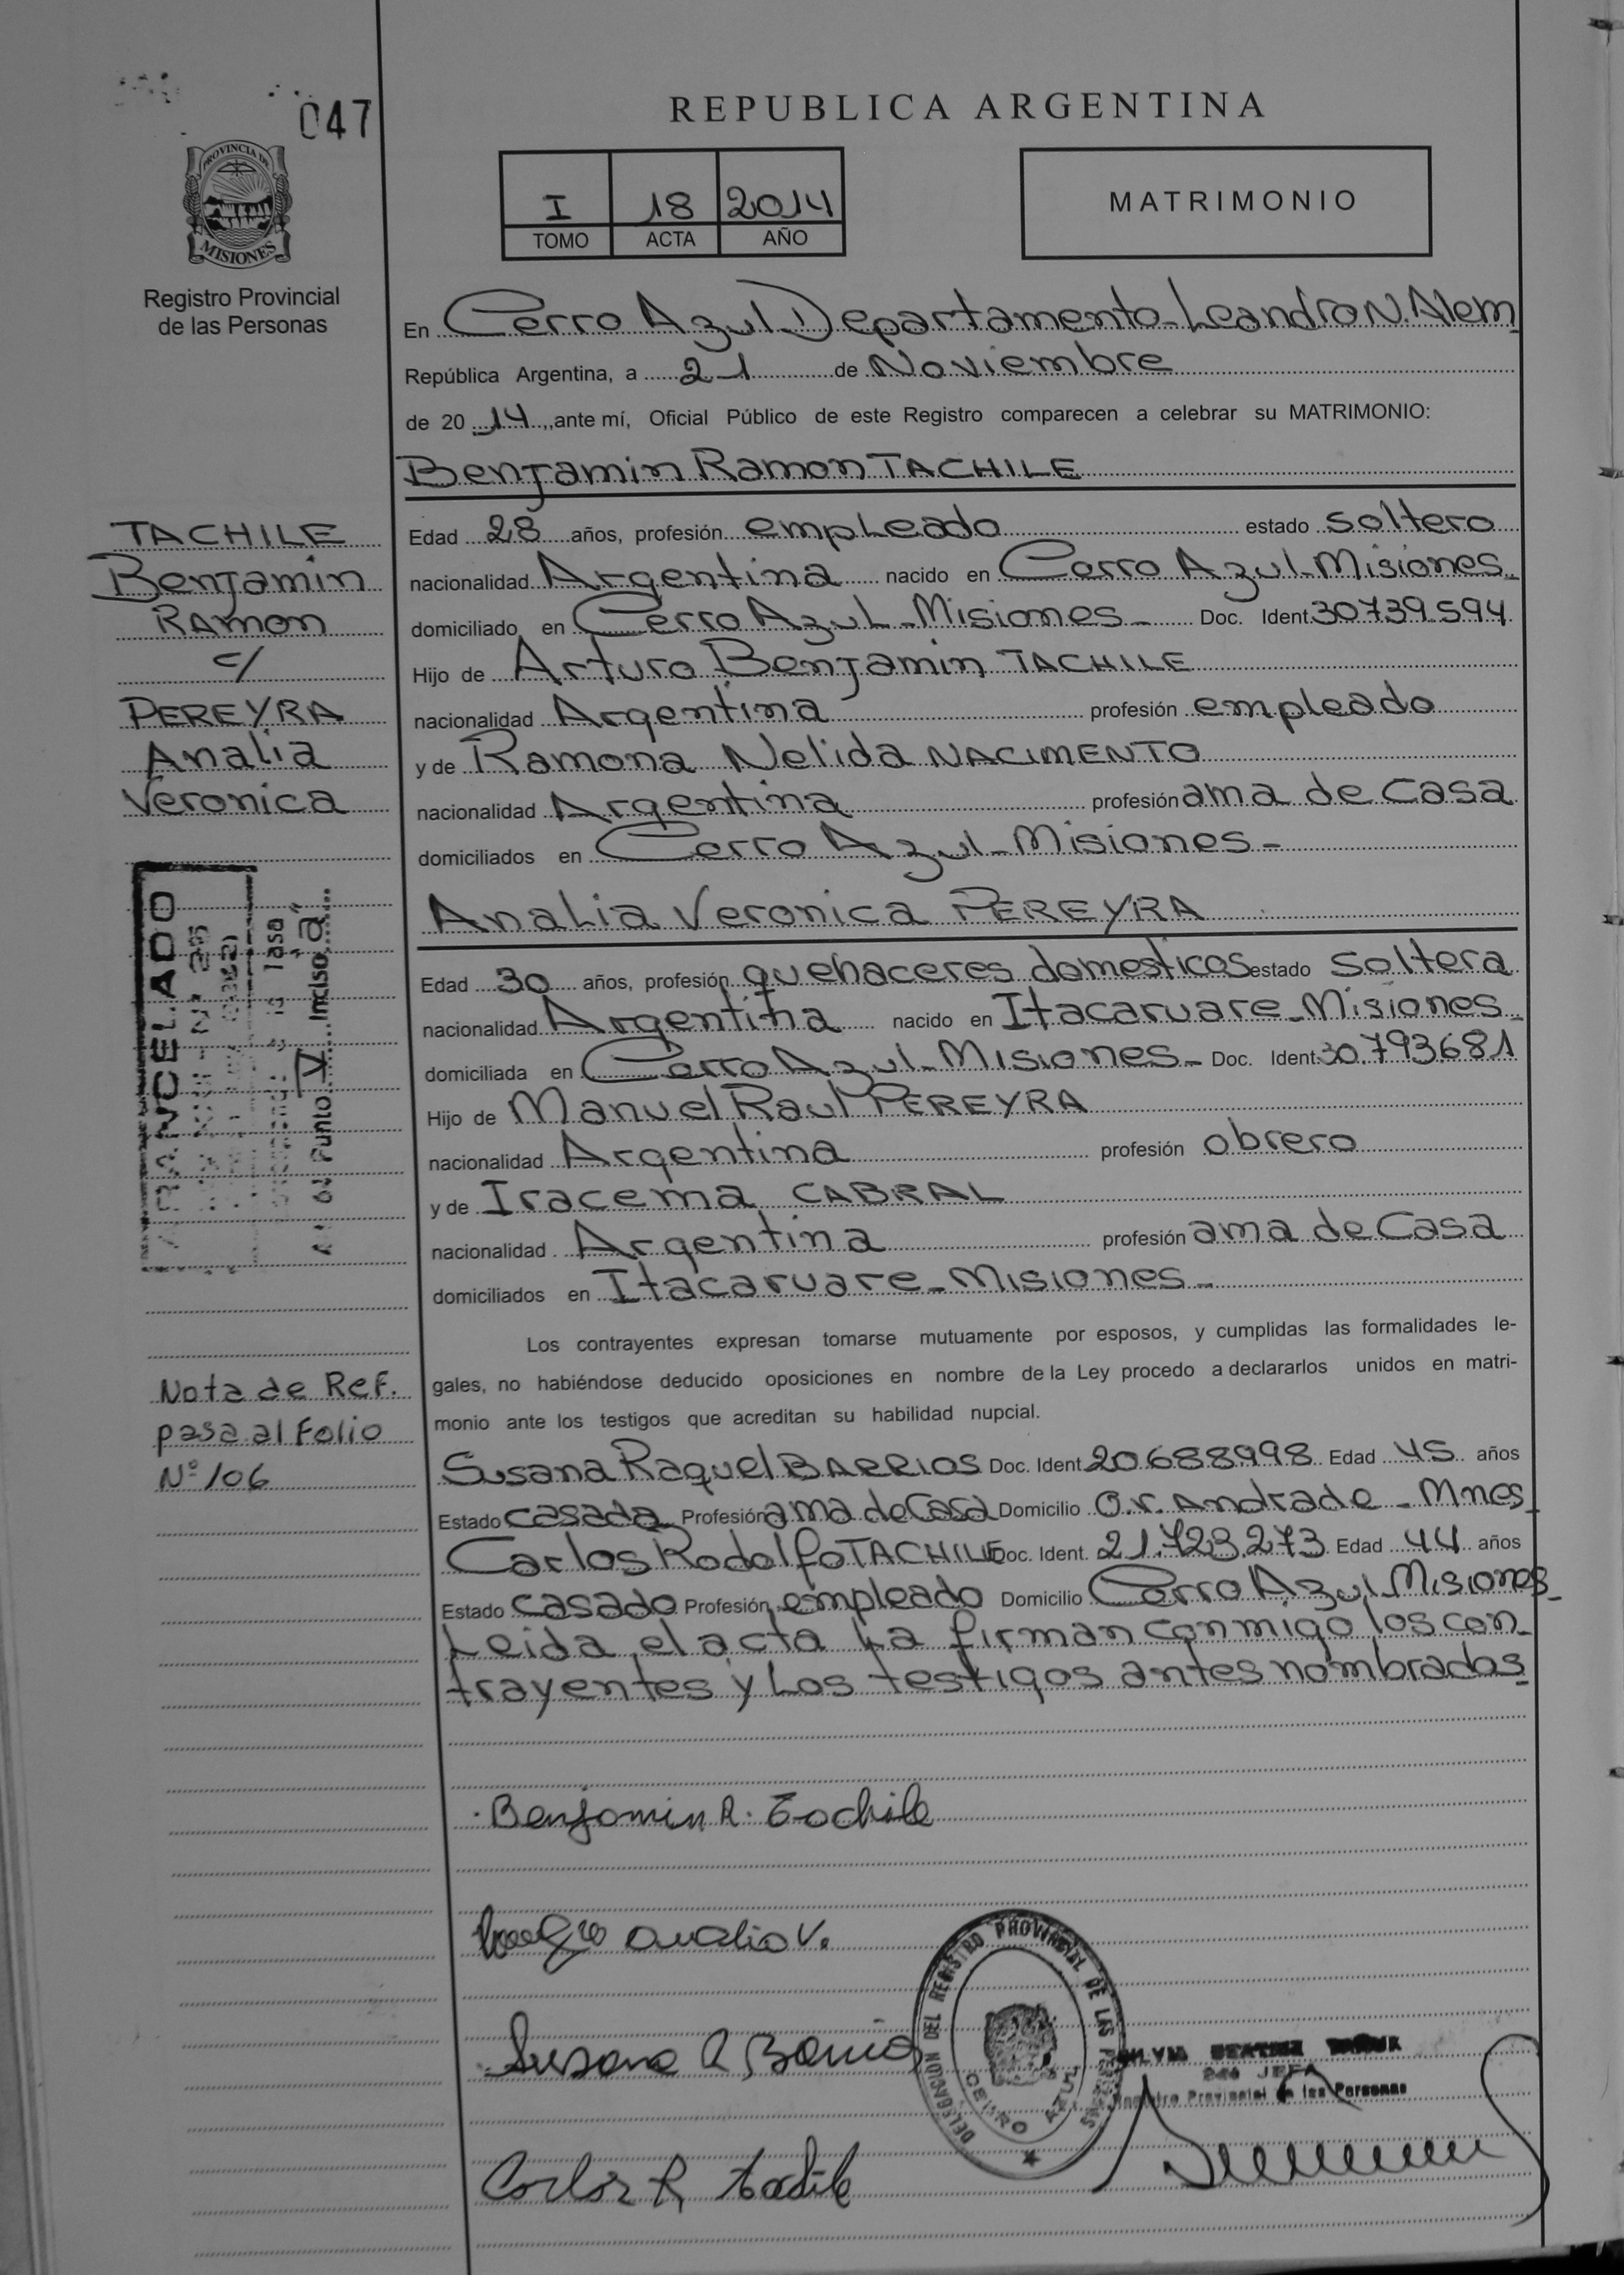 047
REPUBLICA ARGENTINA
PROVINCIA DE
MISIONES
Registro Provincial
de las Personas
I 18 2014
TOMO ACTA AÑO
MATRIMONIO
En Cerro Azul Departamento Leandro N. Alem
República Argentina, a 21 de Noviembre
de 20 14, ante mí, Oficial Público de este Registro comparecen a celebrar su MATRIMONIO:
Benjamin Ramon TACHILE
Edad 28 años, profesión empleado estado soltero
nacionalidad Argentina nacido en Cerro Azul-Misiones
domiciliado en Cerro Azul-Misiones- Doc. Ident. 30739.594
Hijo de Arturo Benjamin TACHILE
nacionalidad Argentina profesión empleado
y de Ramona Nelida NACIMENTO
nacionalidad Argentina profesión ama de casa
domiciliados en Cerro Azul-Misiones-
TACHILE
Benjamin
Ramon
c/
PEREYRA
Analia
Veronica
Analia Veronica PEREYRA
Edad 30 años, profesión quehaceres domesticos estado soltera
nacionalidad Argentina nacido en Itacaruare-Misiones
domiciliada en Cerro Azul-Misiones- Doc. Ident. 30.793681
Hijo de Manuel Raul PEREYRA
nacionalidad Argentina profesión obrero
y de Iracema CABRAL
nacionalidad Argentina profesión ama de Casa
domiciliados en Itacaruare-Misiones-
ARANCELADO
Tasa
Punto V Inciso "a"
Los contrayentes expresan tomarse mutuamente por esposos, y cumplidas las formalidades le-
gales, no habiéndose deducido oposiciones en nombre de la Ley procedo a declararlos unidos en matri-
monio ante los testigos que acreditan su habilidad nupcial.
Nota de Ref.
pasa al Folio
Nº 106
Susana Raquel BARRIOS Doc. Ident. 20688998 Edad 45 años
Estado casada Profesión ama de Casa Domicilio O.V. Andrade - Mnes-
Carlos Rodolfo TACHILE Doc. Ident. 21.723.273 Edad 44 años
Estado casado Profesión empleado Domicilio Cerro Azul-Misiones-
Leida el acta La firman conmigo los con-
trayentes y Los testigos antes nombrados-
Benjamin R. Tachile
Analia V.
Susana R Barrios
DELEGACION DEL REGISTRO PROVINCIAL DE LAS PERSONAS
CERRO AZUL
SILVIA BEATRIZ
JEFA
Registro Provincial de las Personas
Carlos R. Tachile